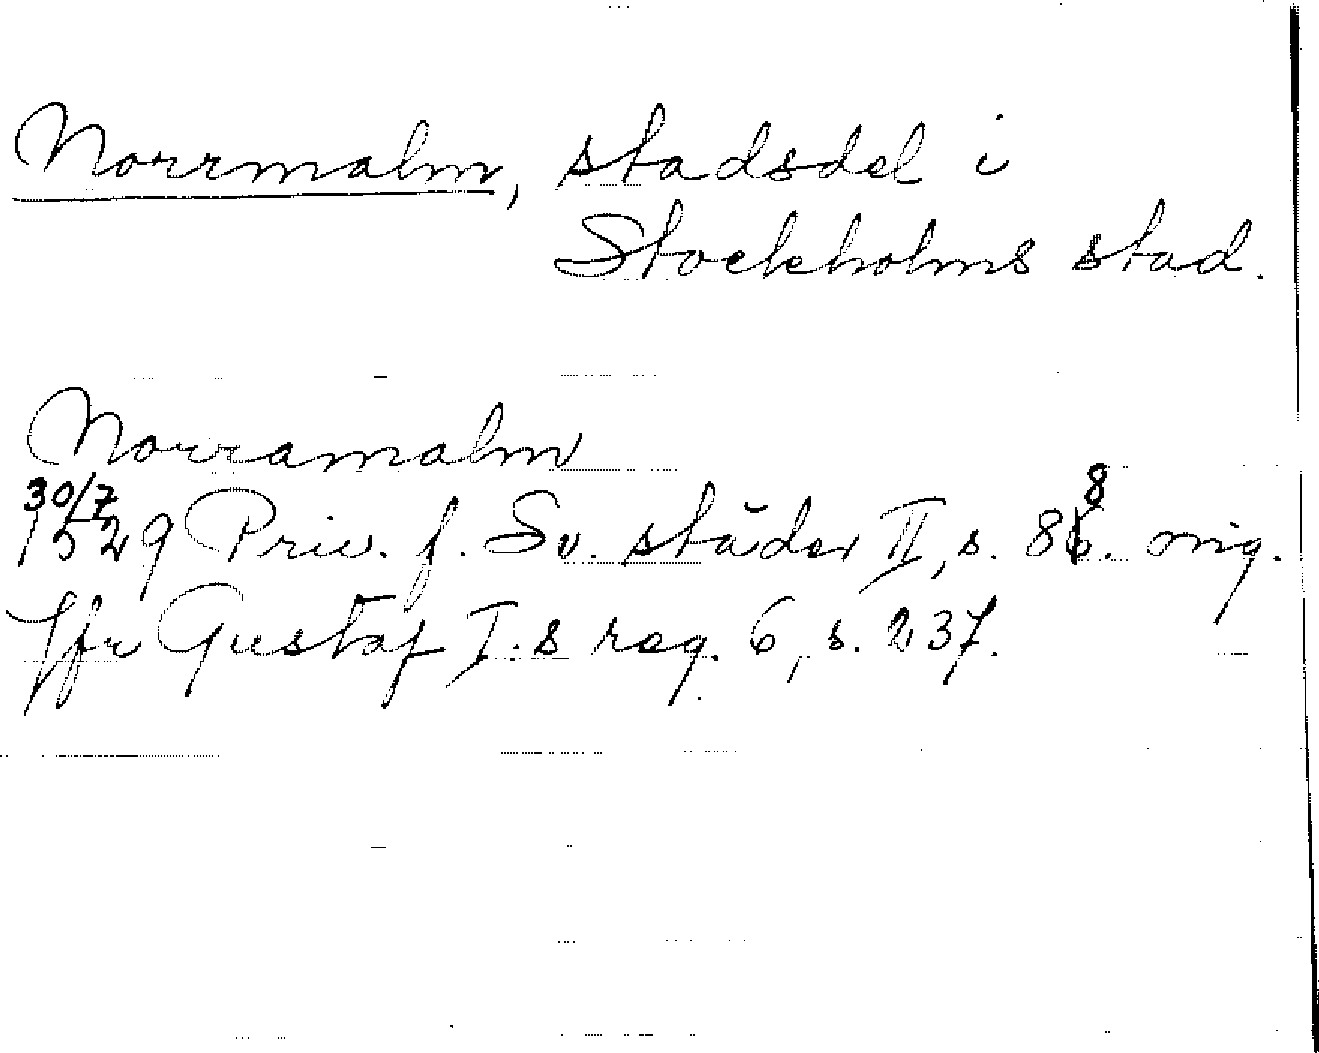 Norrmalm, stadsdel i
Stockholms stad.
Norramalm
30/7
1529 Priv. f. Sv. städer II, s. 88. orig.
Jfr Gustaf I.s reg. 6, s. 237.